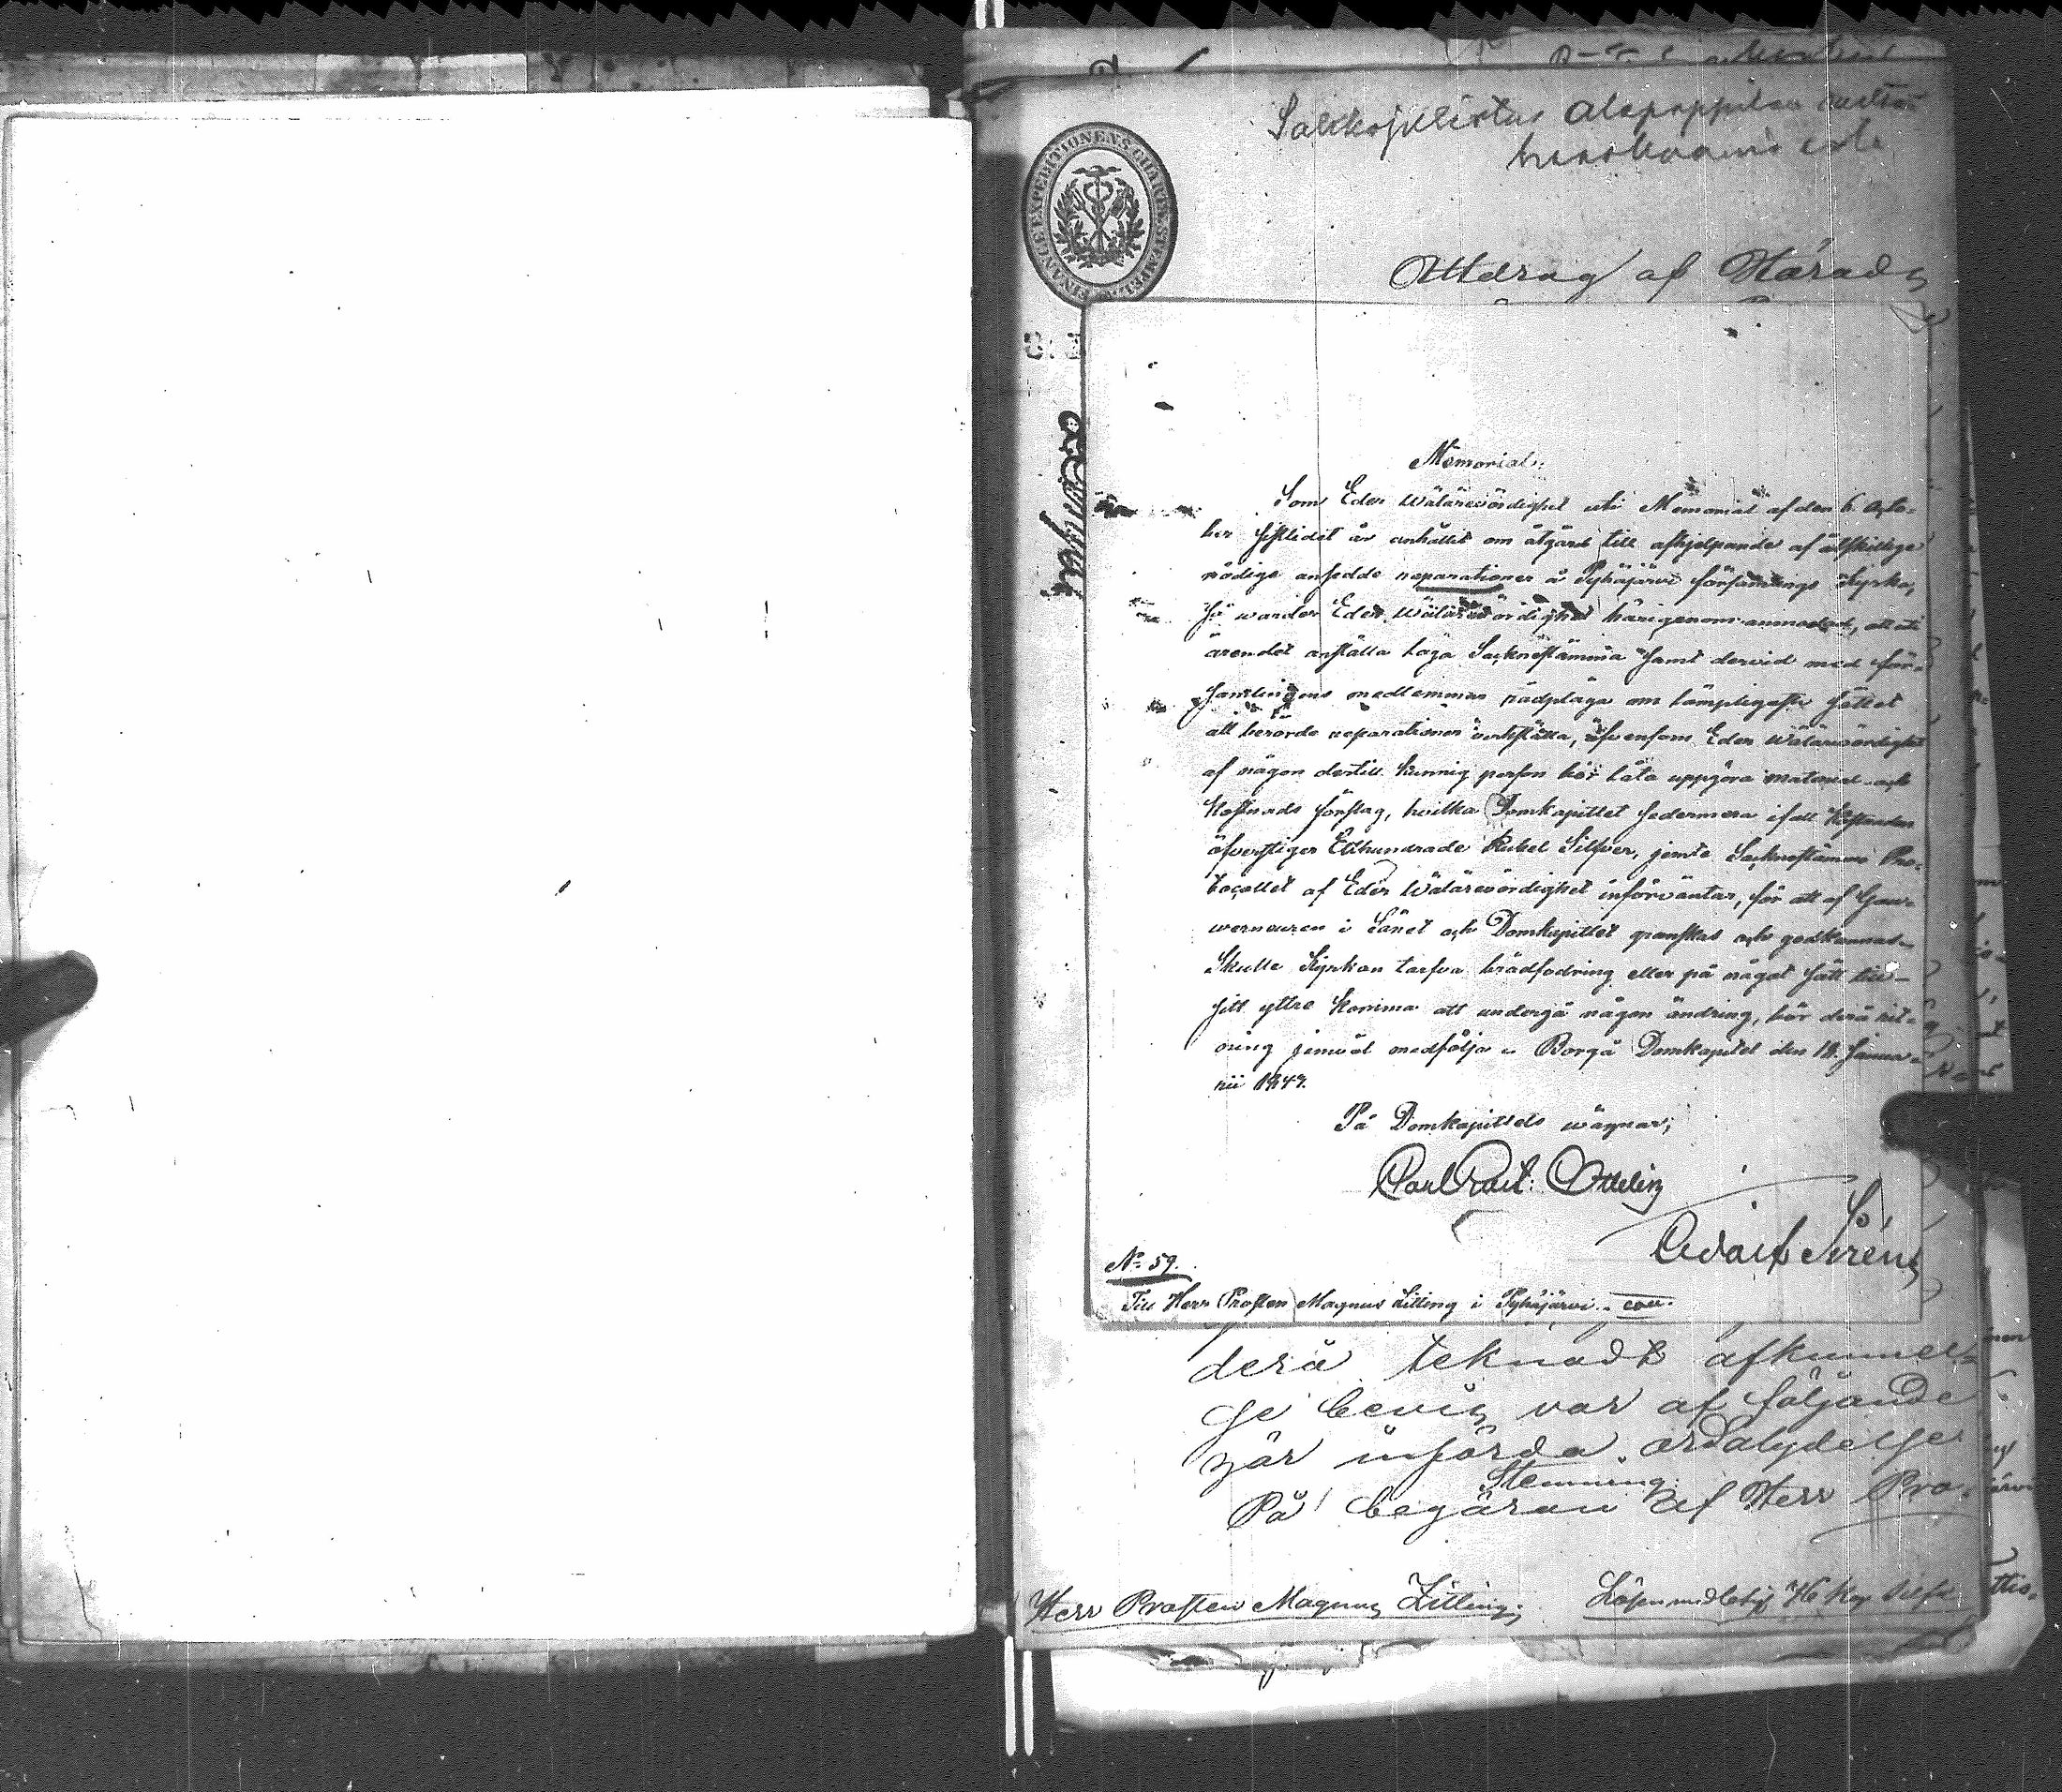 Utdrag af Härads
FINANCEEXPEDITIONENS CHARTÆ
Memorial;
Som Eder Wälärewördighet uti Memorial af den 6 Octo-
ber sistlidit år anhållit om åtgärd till afhjelpande af åtskillige
nödige ansedde reparationer å Pyhäjärvi församlings Kyrka,
så warder Eder Wälärewördighet härigenom anmodad, att i
ärendet anställa laga Socknestämma samt dervid med för-
samlingens medlemmar rådpläga om lämpligaste sättet
att berörde reparationer verkställa, äfvensom Eder Wälärewördighet
af någon dertill kunnig person bör låta uppgöra material och
Kostnads förslag, hvilka Domkapitlet sedermera ifall Kostnaden
öfverstiger Etthundrade Rubel Silfver, jemte Sockenstämmo Pro-
tocollet af Eder Wälärewördighet införväntar, för att af Gou-
verneuren i Länet och Domkapitlet granskas och godkännas.
Skulle Kyrkan tarfva brädfodring eller på något sätt till
sitt yttre komma att undergå någon ändring, bör derå rit-
ning jemväl medfölja. Borgå Domkapitel den 18 Janua-
rii 1849.
På Domkapitlets wägnar,
Carl Gust. Ottelin
Adolf Sirén
No 59.
Till Herr Prosten Magnus Lilling i Pyhäjärvi.
derå teknadt afkunnel-
se bevis var af följande
här införda ordalydelse
Stemning
På begäran af Herr Pro-
Herr Prosten Magnus Lilling;
Lösen med 16 Kop Silfv